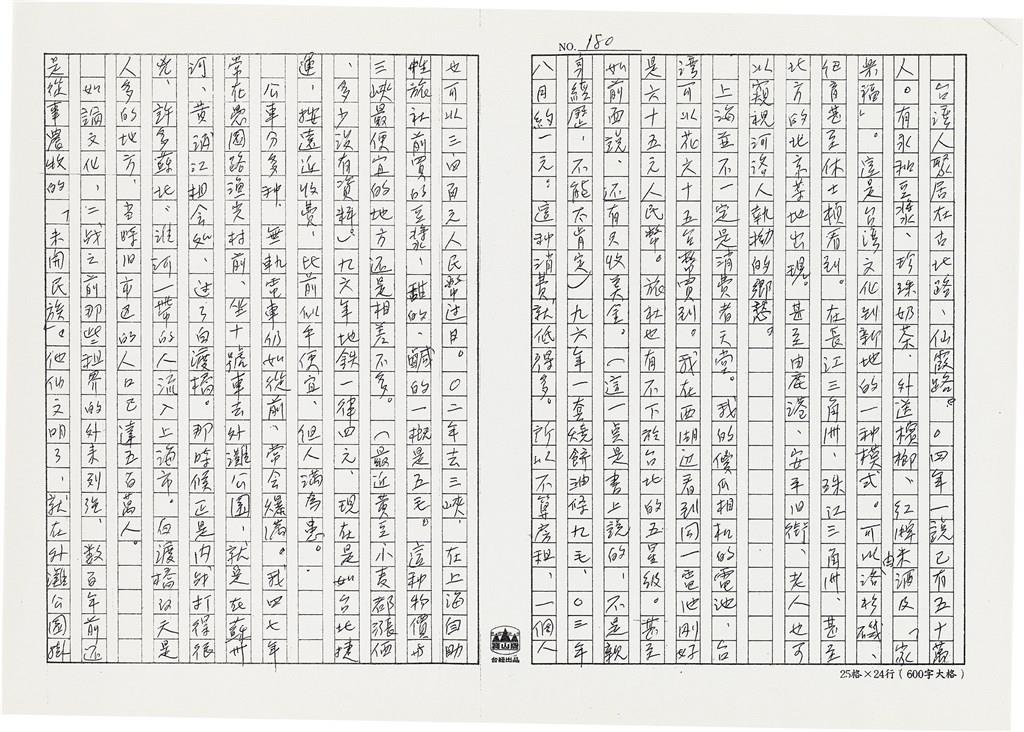 NO. 180
台湾人聚居在古北路、仙霞路。〇四年一說已有五十萬
人。有永和豆漿、珍珠奶茶、外送檳榔、紅標米酒及「家
樂福」。這是台湾文化到新地的一種模式。可以由洛杉磯、
紐育甚至休士頓看到。在長江三角洲、珠江三角洲、甚至
北方的北京等地出現。甚至由鹿港、安平旧街、老人也可
以窺視河洛人執拗的鄉愁。
上海並不一定是消費者天堂。我的傻瓜相机的電池、台
湾可以花六十五台幣買到。我在西湖边看到同一電池剛好
是六十五元人民幣。旅社也有不下於台北的五星級。甚至
如前面說、还有只收美金。（這一点是書上說的、不是親
身經歷、不能太肯定）九六年一套燒餅油條九毛、〇三年
八月約一元。這种消費就低得多。所以不算房租、一個人
也可以三四百元人民幣过日。〇二年去三峽、在上海自助
性旅社前買的豆漿、甜的、鹹的一概是五毛。這种物價与
三峽最便宜的地方还是相差不多。（最近黄豆小麦都漲価
、多少没有資料）。九六年地鉄一律四元、現在是如台北捷
運、按遠近收費、比前似乎便宜、但人滿為患。
公車分多种、無軌電車仍如從前、常会爆滿。我四七年
常在愚園路漁光村前、坐十號車去外灘公園、就是在蘇州
河、黄浦江相会処、过了白渡橋。那時候正是内戦打得很
兇、許多蘇北、淮河一带的人流入上海市。白渡橋以天是
人多的地方、当時旧市区的人口已達五百萬人。
如論文化、二戦之前那些租界的外来列强、数百年前还
是從事農牧的「未開民族」。他们文明了、就在外灘公園掛
寶山牌
台経出品
25格×24行（600字大格）